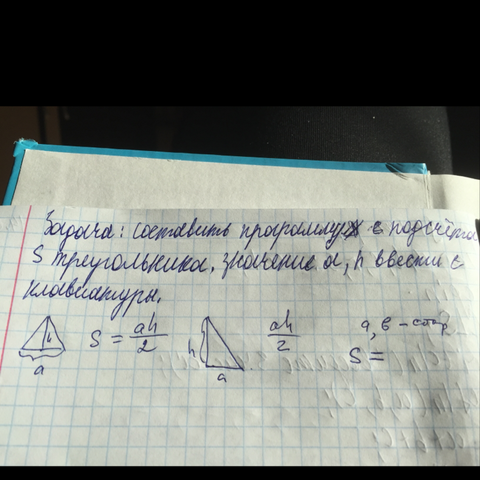 Задача: составить программу с подсчёта
S треугольника. Значение a, h ввести с
клавиатуры.
h a S = ah/2 h a ah/2 a, b - стор.
S =